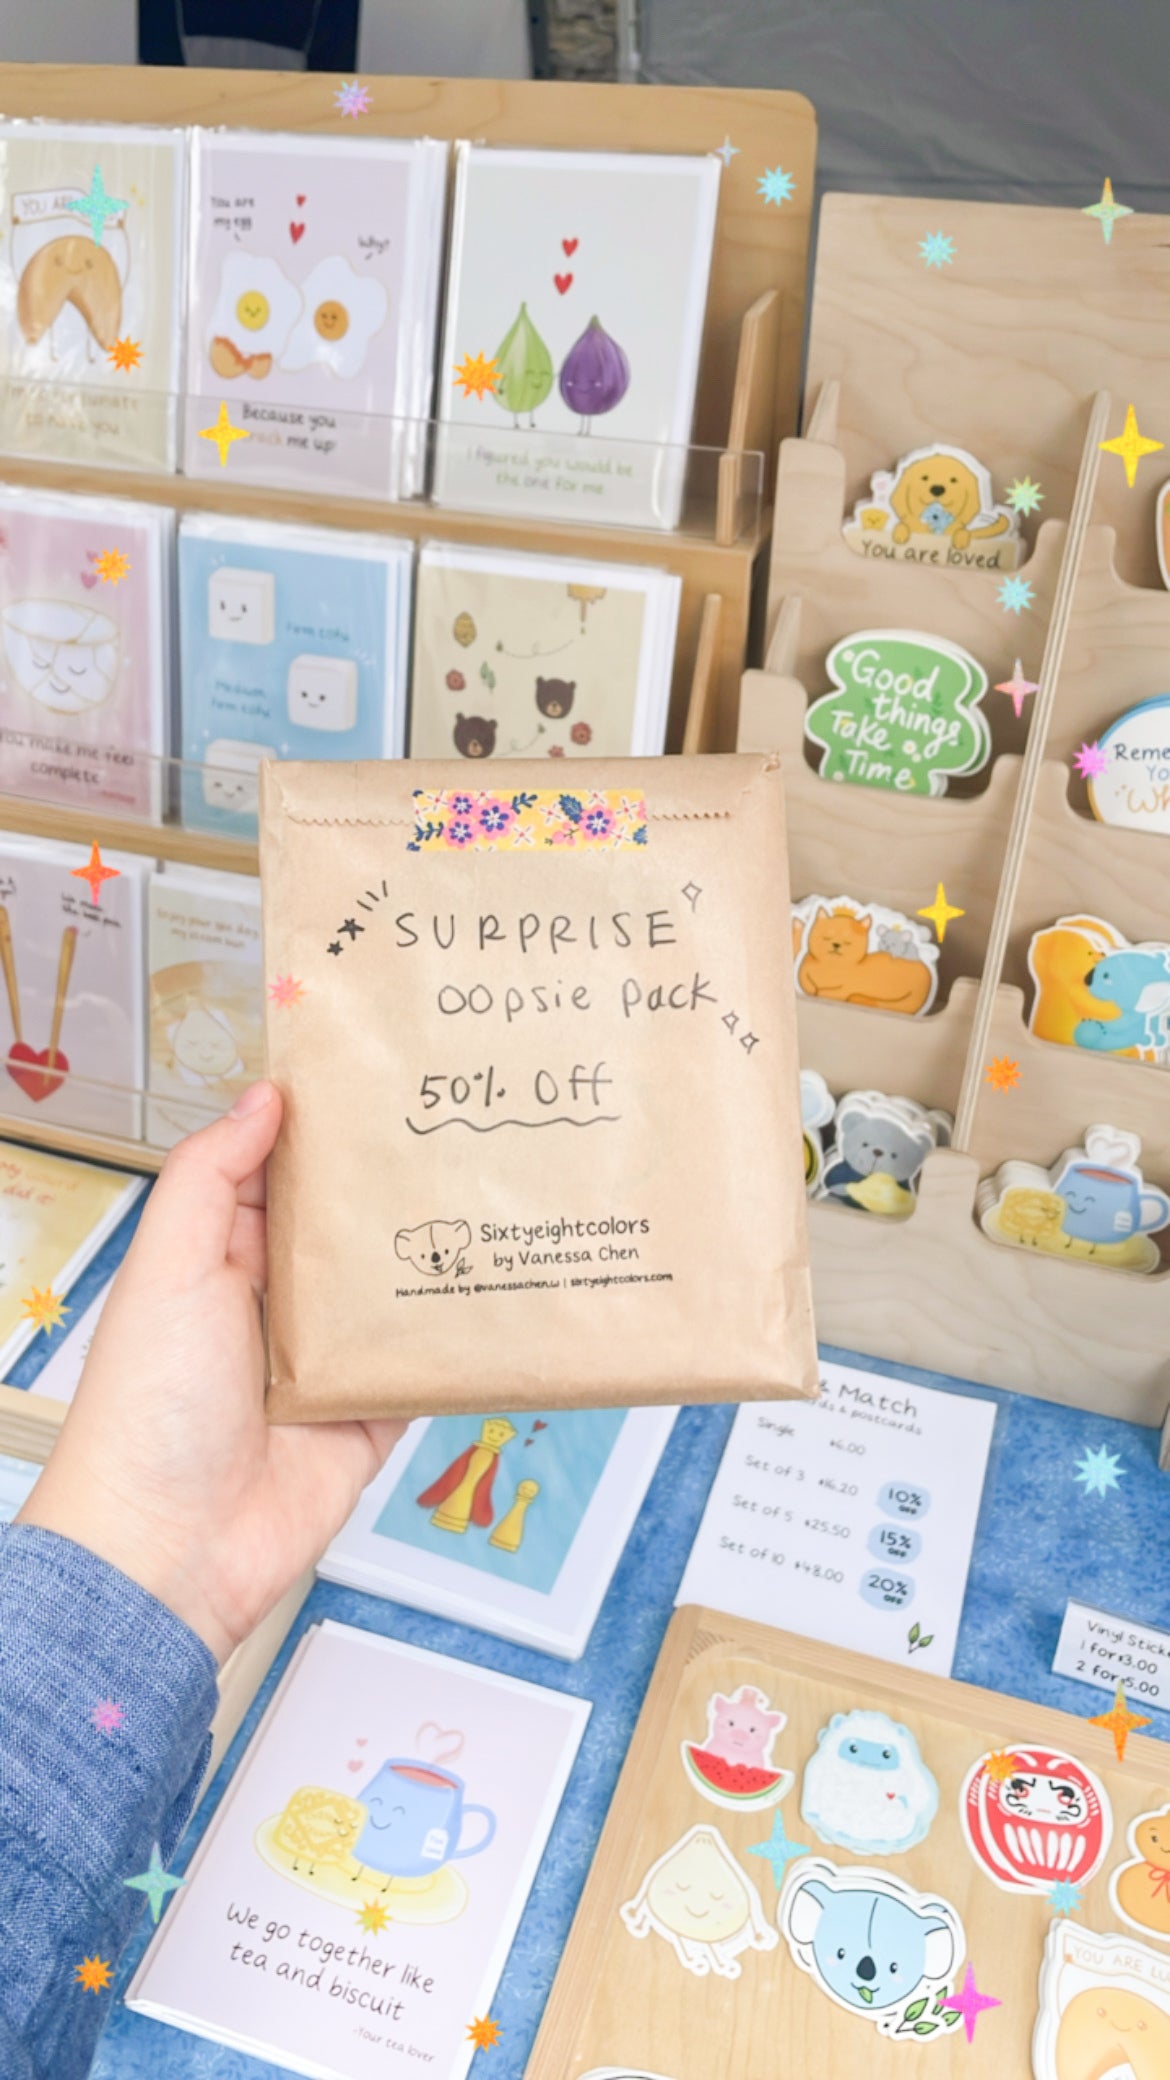 YOU ARE
You are
my egg
Why?
Because you
crack me up
I figured you would be
the one for me
I'm so fortunate
to have you
You are loved
Good
things
Take
Time
Firm tofu
Medium
firm tofu
You make me feel
complete
Reme
Yo
Wh
Enjoy your
SURPRISE
oopsie pack
50% Off
Sixtyeightcolors
by Vanessa Chen
Handmade by @vanessachen.w | sixtyeightcolors.com
& Match
ds & postcards
Single $6.00
Set of 3 $16.20 10% OFF
Set of 5 $25.50 15% OFF
Set of 10 $48.00 20% OFF
Vinyl Stick
1 for $3.00
2 for $5.00
We go together like
tea and biscuit
-Your tea lover
YOU ARE LU